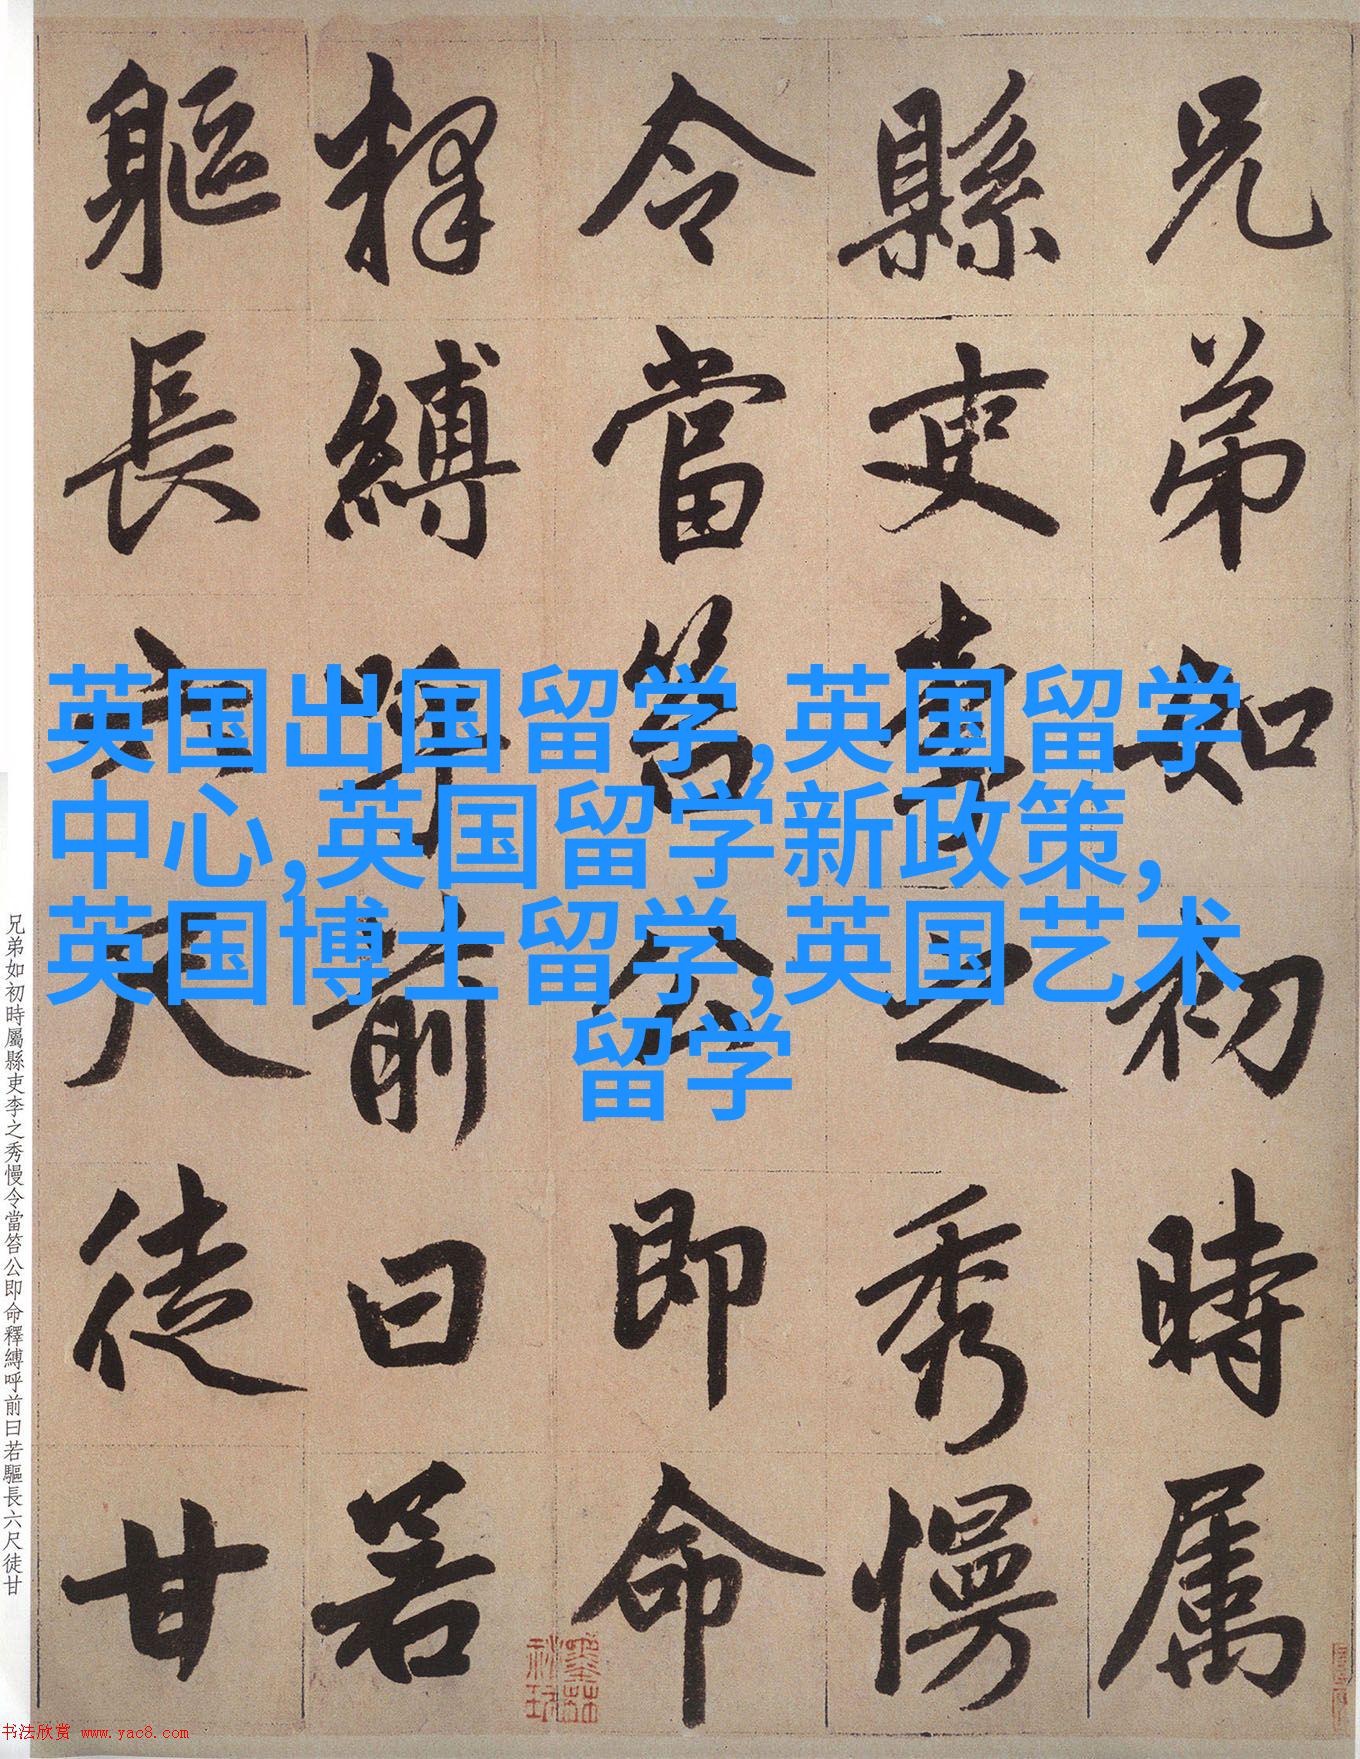 兄弟如初時属
縣吏李之秀慢
令當笞公即命
释縛呼前曰若
軀長六尺徒甘
英国出国留学,英国留学
中心,英国留学新政策,
英国博士留学,英国艺术
留学
兄弟如初時屬縣吏李之秀慢令當笞公即命釋縛呼前曰若軀長六尺徒甘
书法欣赏 www.yac8.com